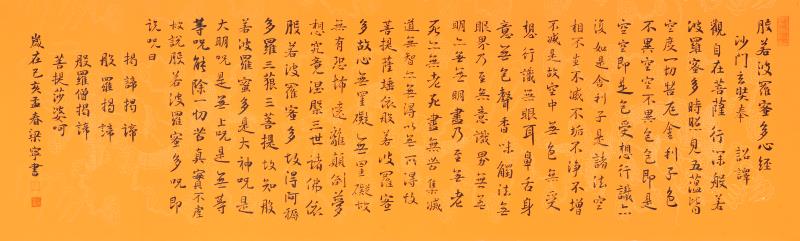 般若波羅蜜多心經
沙門玄奘奉 詔譯
觀自在菩薩行深般若
波羅蜜多時照見五蘊皆
空度一切苦厄舍利子色
不異空空不異色色即是
空空即是色受想行識亦
復如是舍利子是諸法空
相不生不滅不垢不淨不增
不減是故空中無色無受
想行識無眼耳鼻舌身
意無色聲香味觸法無
眼界乃至無意識界無無
明亦無無明盡乃至無老
死亦無老死盡無苦集滅
道無智亦無得以無所得故
菩提薩埵依般若波羅蜜
多故心無罣礙無罣礙故
無有恐怖遠離顛倒夢
想究竟涅槃三世諸佛依
般若波羅蜜多故得阿耨
多羅三藐三菩提故知般
若波羅蜜多是大神呪是
大明呪是無上呪是無等
等呪能除一切苦真實不虛
故說般若波羅蜜多呪即
說呪曰
揭諦揭諦
般羅揭諦
般羅僧揭諦
菩提莎婆呵
歲在己亥孟春梁寧書